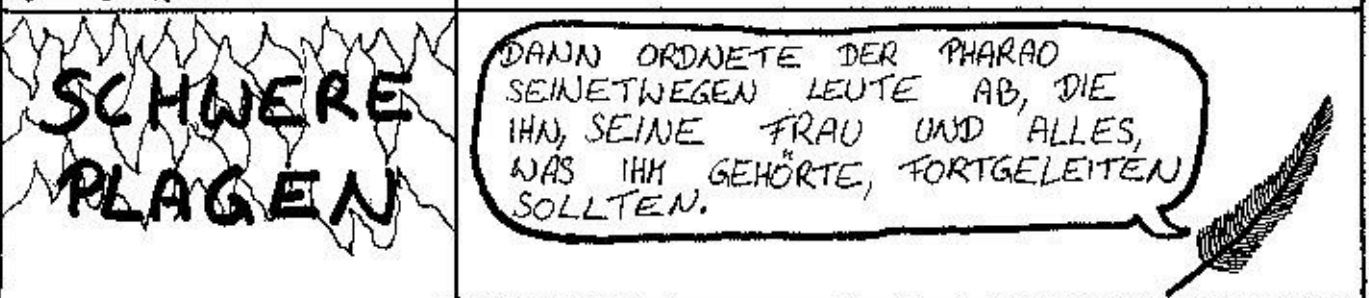 SCHWERE
PLAGEN
DANN ORDNETE DER PHARAO
SEINETWEGEN LEUTE AB, DIE
IHN, SEINE FRAU UND ALLES,
WAS IHM GEHÖRTE, FORTGELEITEN
SOLLTEN.